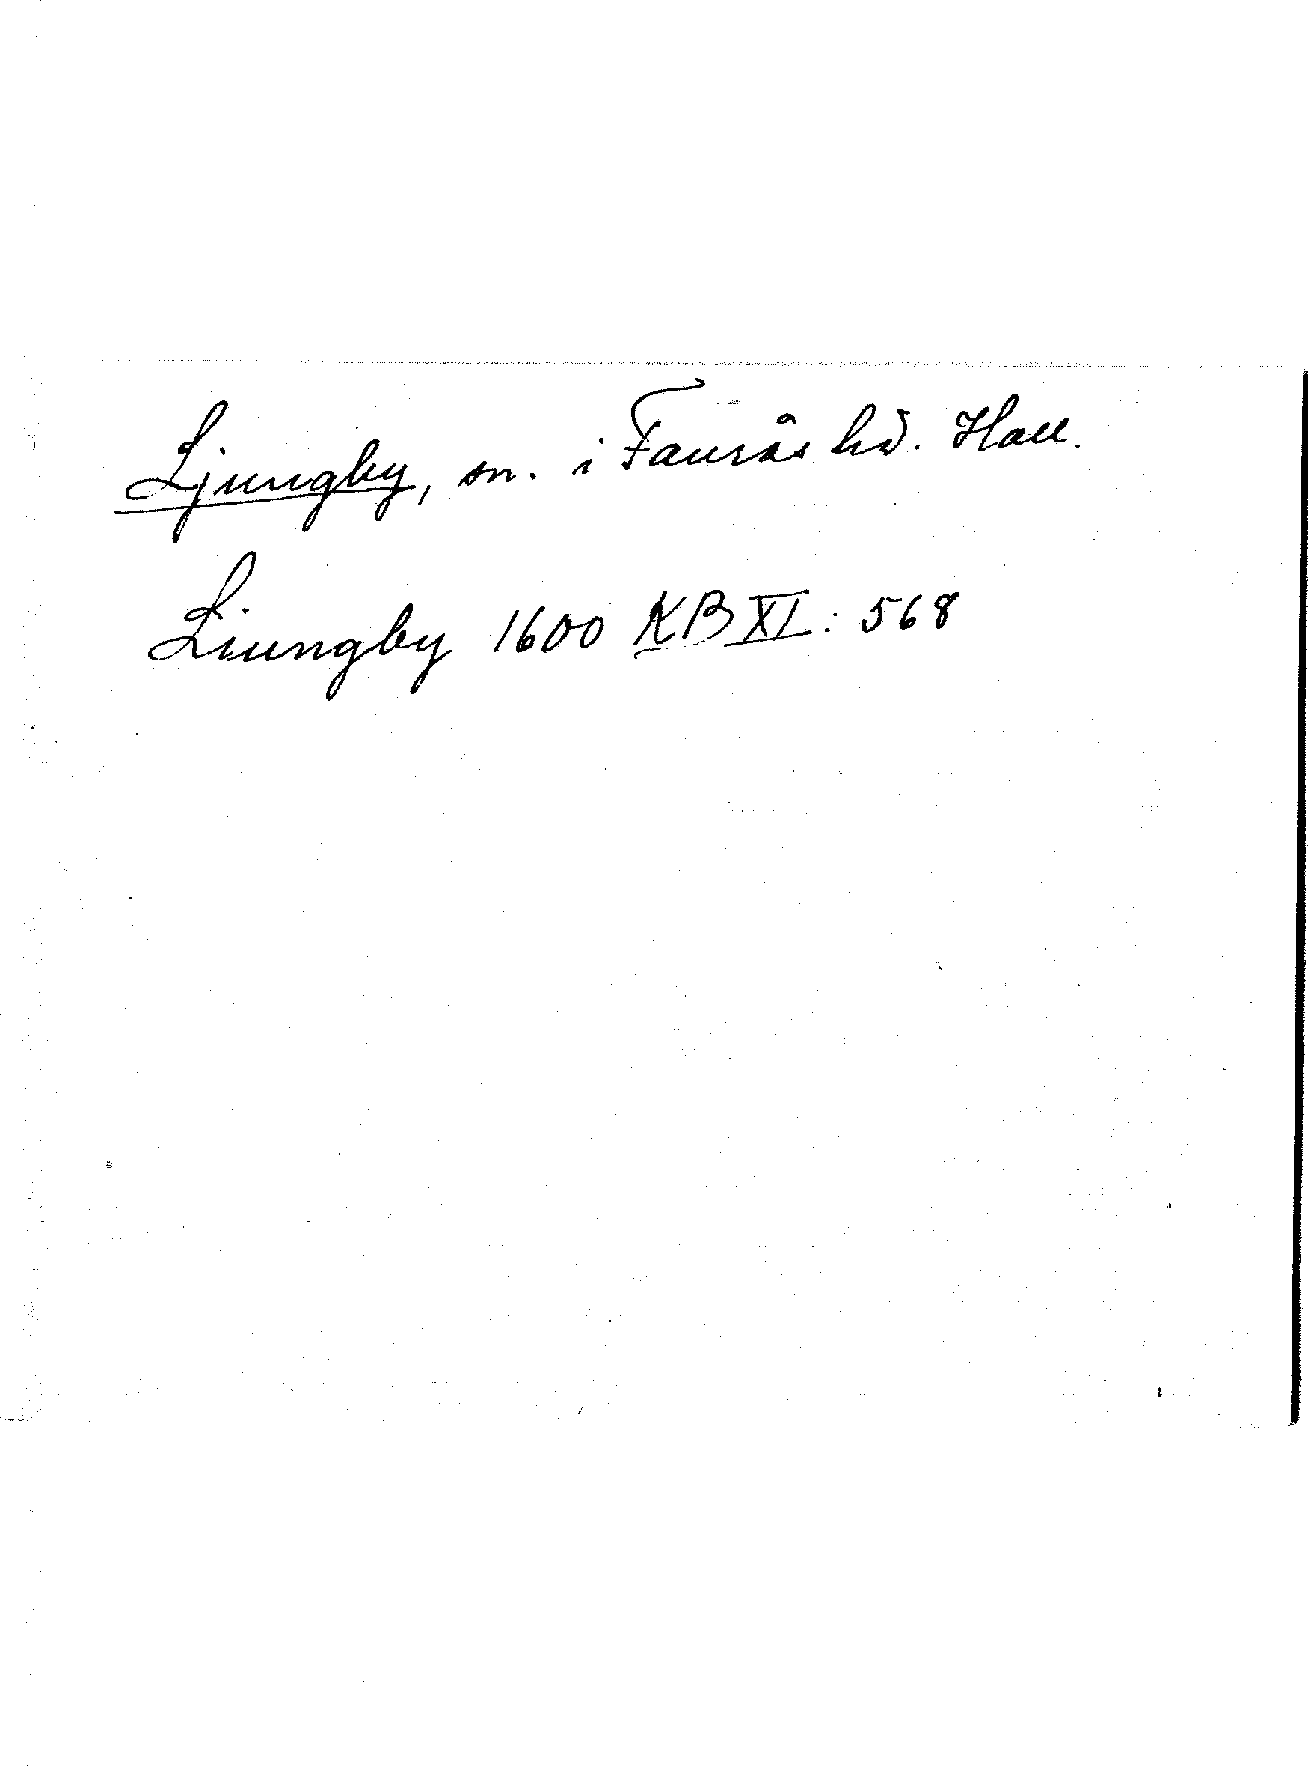 Ljungby, sn. i Faurås hd. Hall.
Liungby 1600 KB XI: 568